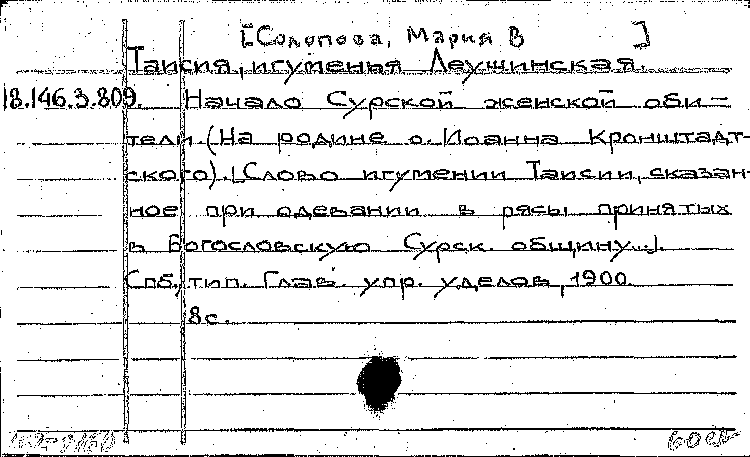 [Солопова, Мария В ]
Таисия, игуменья Леушинская.
18.146.3.809. Начало Сурской женской оби-
тели (На родине о. Иоанна Кронштадт-
ского). [Слово игумении Таисии, сказан-
ное при одевании в рясы принятых
в Богословскую Сурск. общину...].
Спб, тип. Глав. упр. уделов, 1900.
8с.